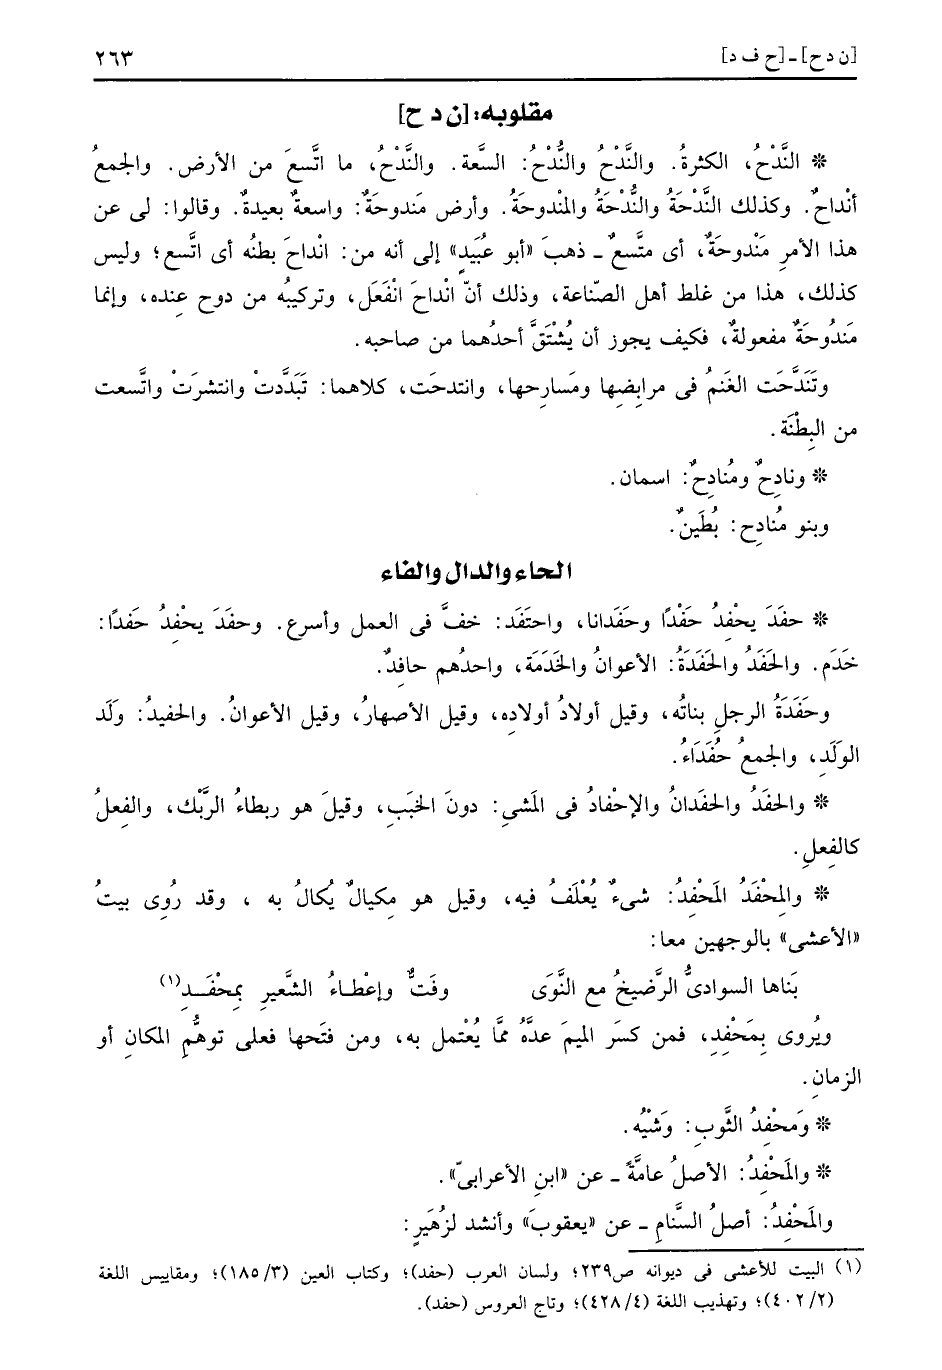 [ن د ح] ـ [ح ف د] ٢٦٣
مقلوبه: [ن د ح]
* النَّدْحُ، الكثرةُ. والنَّدْحُ والنُّدْحُ: السَّعة. والنَّدْحُ، ما اتَّسعَ من الأرض. والجمعُ
أنْداحٌ. وكذلك النَّدْحَةُ والنُّدْحَةُ والمنْدوحَةُ. وأرض مَندوحَةٌ: واسعةٌ بعيدةٌ. وقالوا: لى عن
هذا الأمرِ مَنْدوحَةٌ، أى متَّسعٌ ـ ذهبَ «أبو عُبَيدٍ» إلى أنه من: انْداحَ بطنُه أى اتَّسع؛ وليس
كذلك، هذا من غلط أهل الصّناعة، وذلك أنّ انْداحَ انْفَعَل، وتركيبُه من دوح عِنده، وإنما
مَندُوحَةٌ مفعولةٌ، فكيف يجوز أن يُشْتَقَّ أحدُهما من صاحبه.
وتَنَدَّحَت الغَنمُ فى مرابِضِها ومَسارِحها، وانتدحَت، كلاهما: تَبَدَّدتْ وانتشرَتْ واتَّسعت
من البِطْنَة.
* ونادِحٌ ومُنادِحٌ: اسمان.
وبنو مُنادِح: بُطَينٌ.
الحاء والدال والفاء
* حفَدَ يحْفِدُ حَفْدًا وحَفَدانا، واحتَفَد: خفَّ فى العمل وأسرع. وحفَدَ يحْفِدُ حَفدًا:
خَدَم. والحَفَدُ والحَفَدَةُ: الأعوانُ والخَدَمَة، واحدُهم حافدٌ.
وحَفَدَةُ الرجلِ بناتُه، وقيل أولادُ أولادِه، وقيل الأصهارُ، وقيل الأعوانُ. والحفيدُ: ولَد
الولَدِ، والجمعُ حُفَدَاءُ.
* والحفَدُ والحفَدانُ والإحْفادُ فى المَشىِ: دونَ الخَبَبِ، وقيلَ هو رِبطاءُ الرَّبْك، والفِعلُ
كالفِعلِ.
* والمِحْفَدُ المَحْفِدُ: شىءٌ يُعْلَفُ فيه، وقيل هو مكيالٌ يُكالُ به ، وقد رُوِى بيتُ
«الأعشى» بالوجهين معا:
بَناها السوادىُّ الرَّضيخُ مع النَّوَى وفَتٌّ وإعْطـاءُ الشَّعيرِ بِمحْفَـدِ(١)
ويُروى بِمَحْفِدِ، فمن كسَر الميمَ عدَّهُ ممَّا يُعْتمل به، ومن فتَحها فعلى توهُّمِ المكانِ أو
الزمانِ.
* ومَحفِدُ الثَّوبِ: وَشْيُه.
* والمَحْفِدُ: الأصلُ عامَّةً ـ عن «ابنِ الأعرابىّ».
والمَحْفِدُ: أصلُ السَّنامِ ـ عن «يعقوبَ» وأنشد لزُهَيرٍ:
(١) البيت للأعشى فى ديوانه ص٢٣٩؛ ولسان العرب (حفد)؛ وكتاب العين (٣/ ١٨٥)؛ ومقاييس اللغة
(٢/ ٤٠٢)؛ وتهذيب اللغة (٤/ ٤٢٨)؛ وتاج العروس (حفد).